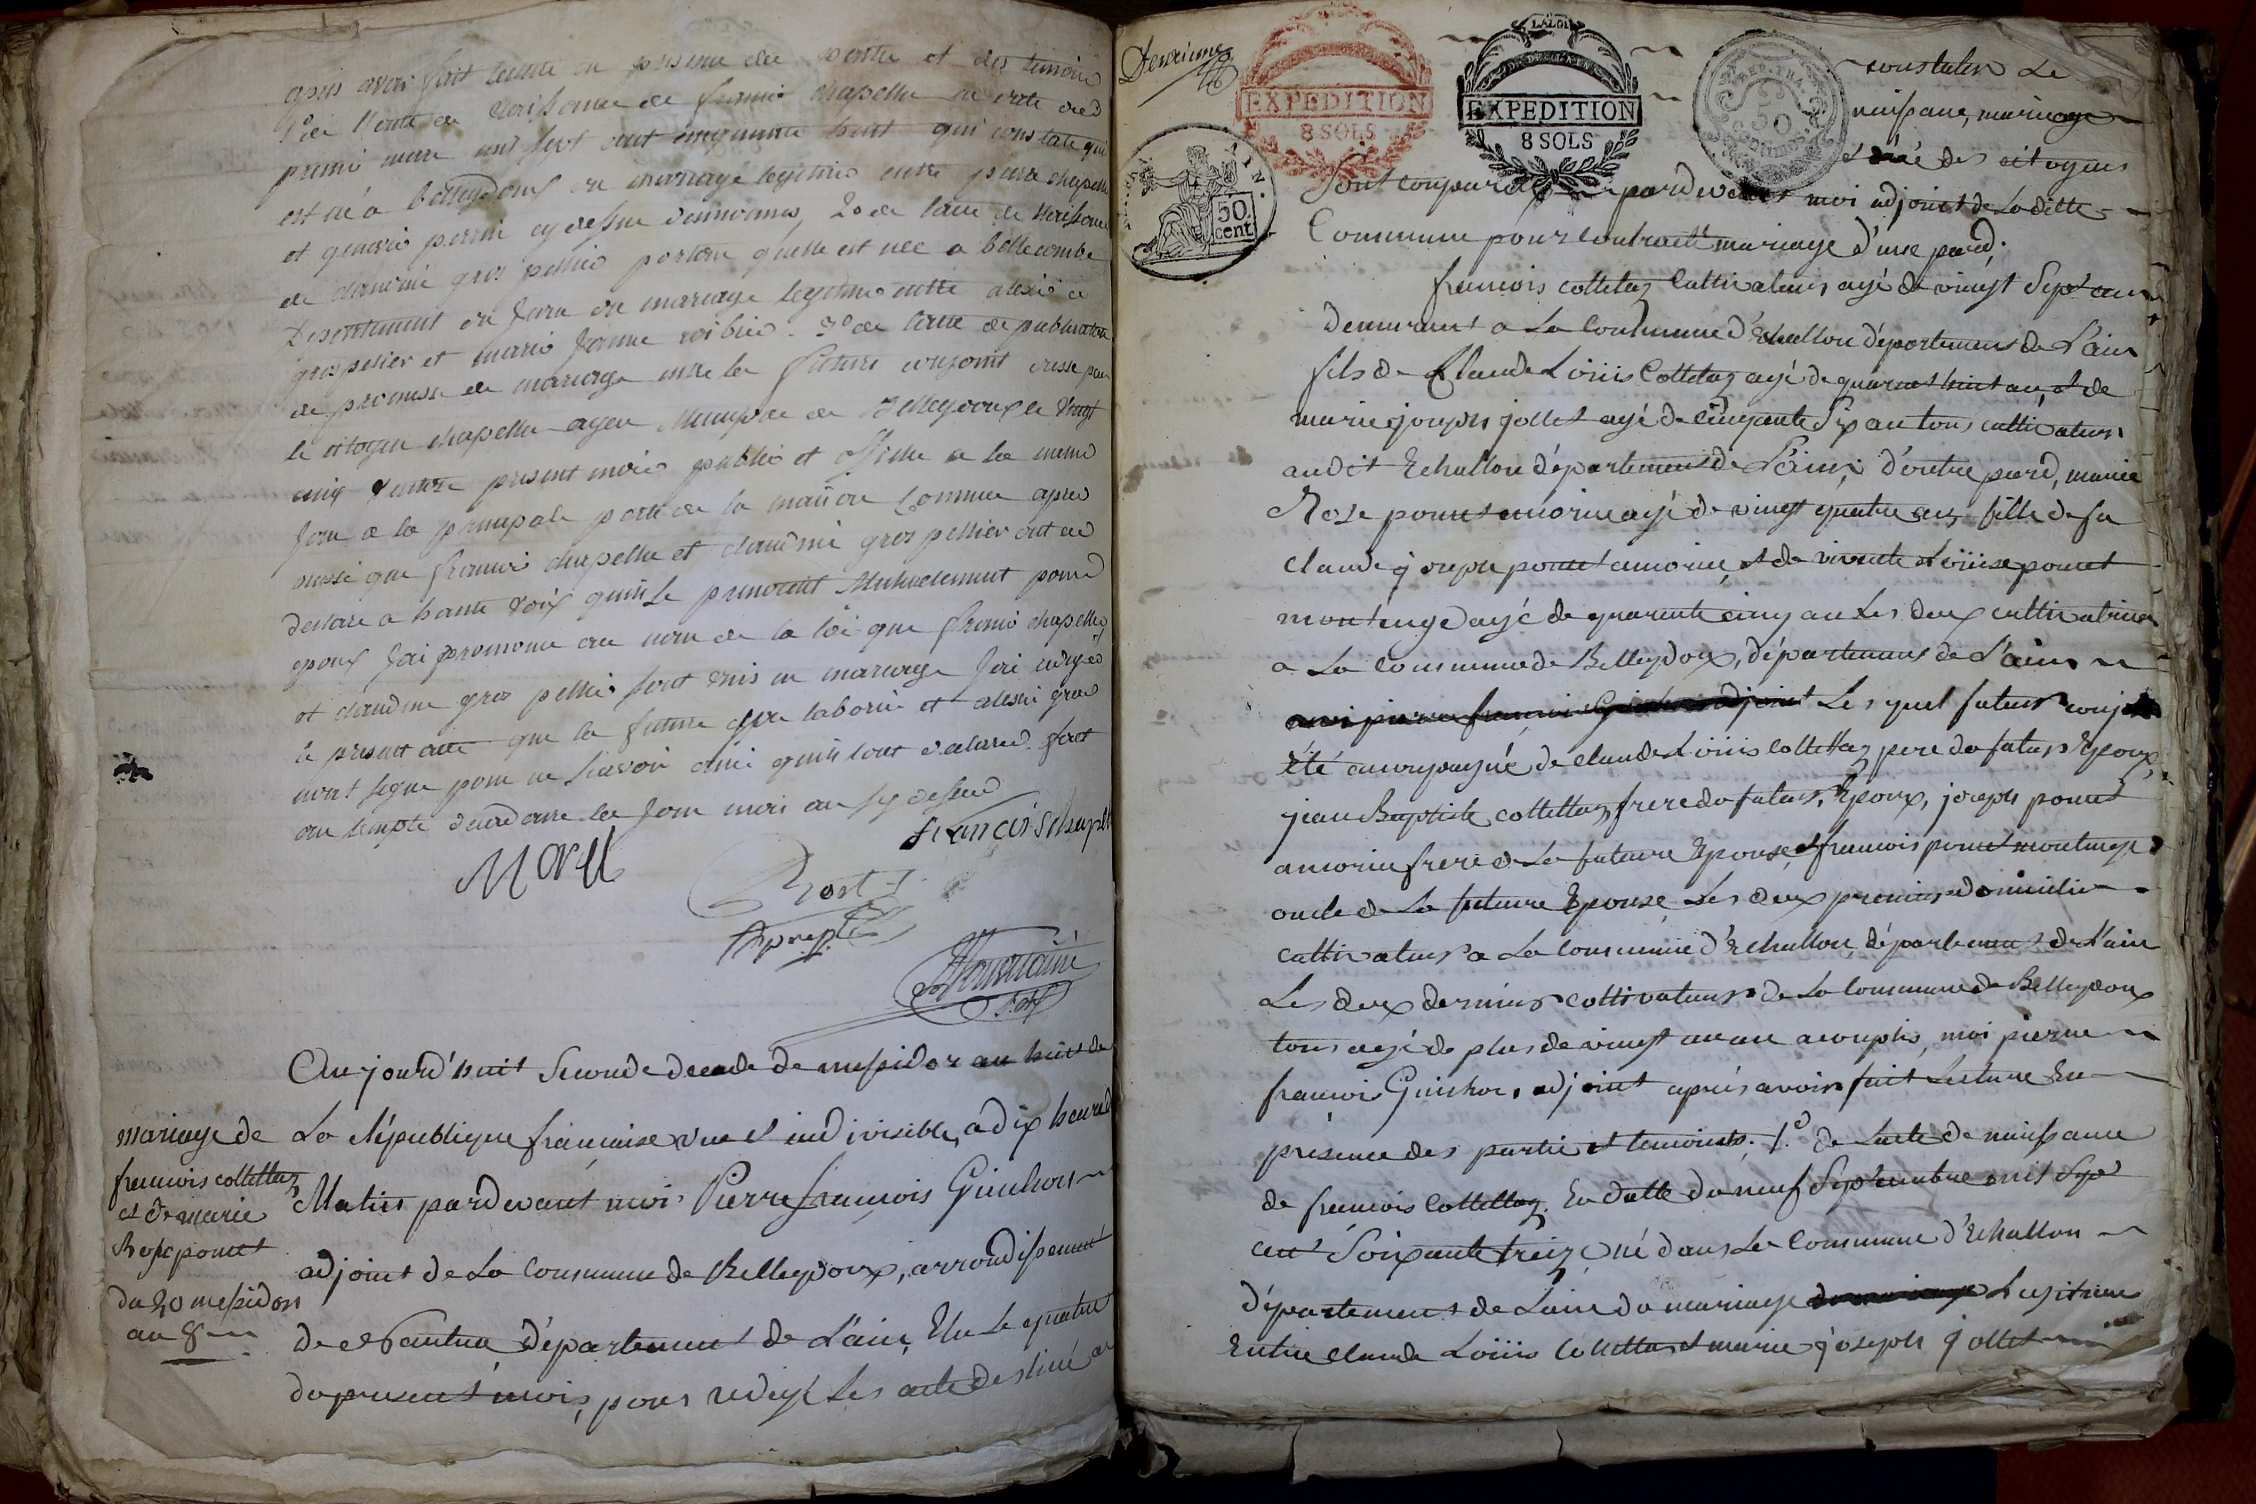 apres avoir fait lecture en presence des parties et des temoins
1° de l'acte de naissance de francois chapellu en date du
premier mars mil sept cent cinquante huit qui constate qu'il
est né a belleydoux du mariage legitime entre pierre chapellu
et perrin cy dessus denommes, 2° de l'acte de naissance
de claudine gros pellier portant quelle est née a bellecombe
Departement du Jura du mariage legitime entre alexis
grospelier et marie Jeanne 3° de l'acte de publication
de promesse de mariage entre les futurs conjoints dressé par
le citoyen chapellu agent Municipal de Belleydoux le vingt
cinq present mois publié et affiché le meme
Jour a la principale porte de la maison Commune apres
aussi que francois chapellu et claudine gros pellier ont eu
declaré a haute voix qu'ils se prenoient Mutuelement pour
epoux J'ai prononcé au nom de la loi que francois chapellu
et claudine gros pellier sont unis en mariage J'ai redigé
le present acte que la future et alexis gros
n'ont signé pour ne savoir ainsi qu'ils l'ont declaré fait
au temple decadaire les Jour mois an cy dessus
francois chapel
Morel
Rost
Au jourd'huit Seconde decade de messidor an huit de
La République française une et indivisible, a dix heures
Matin pardevant moi Pierre françois Guichon
adjoint de La Commune de Belleydoux, arrondissement
de Nantua département de L'ain, Elu Le quatre
du present mois, pour redigé Les acte destiné a
mariage de
francois collettaz
et de marie
Rose ponset
du 20 messidor
an 8
Deuxieme
EXPEDITION
8 SOLS
LA LOI
EXPEDITION
8 SOLS
REP. FRA.
50
CENTIMES
50
cent.
constater Le
naissance, mariage
et décé des citoyens
Sont comparu pardevant moi adjoint de La ditte
Commune pour contracté mariage d'une pard,
francois colletaz Cultivateur agé de vingt Sept an
demurant a La Commune d'Echallon département de L'ain
fils de Claude Loüis Colletaz agé de quarant huit an, et de
marie joseph jollet agé de cinquante Six an tous cultivateur
audit Echallon département de L'ain; d'outre pard, marie
Rose ponset amorine agé de vingt quatre ans fille de fu
claude joseph ponset amorine, et de vivante Loüise ponset
montange agé de quarente cinq an Les deux cultivatrice
a La Commune de Belleydoux, département de L'ain
moi pierre francois Guichon adjoint Les quel futur conjoint
été accompagné de claude Loüis collettaz pere du futur Epoux,
jean Baptiste collettaz frere du futur Epoux, joseph ponset
amorine frere de La future Epouse et francois ponset montange
oncle de La future Epouse Les deux premier domicilié
cultivateur a La Commune d'Echallon département de L'ain
Les deux dernier coltivateurs de La Commune de Belleydoux
tous agé de plus de vingt un an acomplis, moi pierre
francois Guichon adjoint aprés avoir fait Lecture En
présence des partie et temoints. 1.° de Lacte de naissance
de francois Collettaz En datte du neuf Septembre mil Sept
cent Soixante treize né dans La Commune d'Echallon
département de Lain du mariage du mariage Legitime
Entre claude Loüis Collettaz et marie joseph jollet